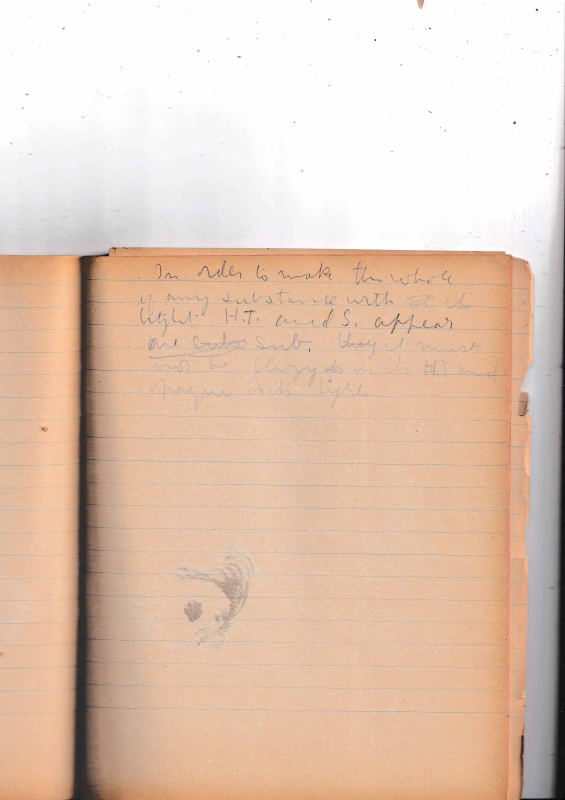 In order to make the whole
of any substance with its
light H.T. and S. appear
one Sub. it must
not be glazy in its H.T and
opaque in its lights